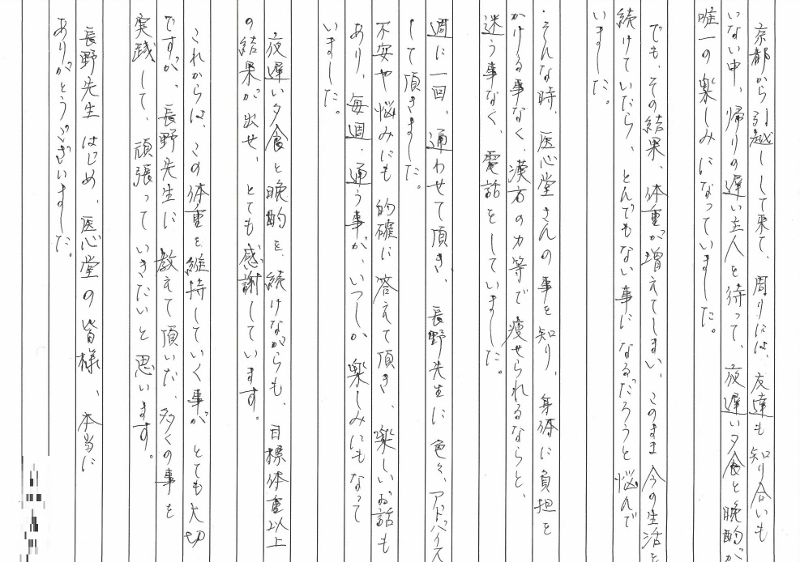 京都から引越しして来て、周りには、友達も知り合いも
いない中、帰りの遅い主人を待って、夜遅い夕食と晩酌が
唯一の楽しみになっていました。
でも、その結果、体重が増えてしまい、このまま今の生活を
続けていたら、とんでもない事になるだろうと悩んで
いました。
そんな時、医心堂さんの事を知り、身体に負担を
かける事なく、漢方の力等で痩せられるならと、
迷う事なく、電話をしていました。
週に一回、通わせて頂き、長野先生に色々、アドバイス
して頂きました。
不安や悩みにも的確に答えて頂き、楽しいお話も
あり、毎週、通う事が、いつしか楽しみにもなって
いました。
夜遅い夕食と晩酌を、続けながらも、目標体重以上
の結果が出せ、とても感謝しています。
これからは、この体重を維持していく事がとても大切
ですが、長野先生に教えて頂いた、多くの事を
実践して、頑張っていきたいと思います。
長野先生はじめ、医心堂の皆様、本当に
ありがとうございました。